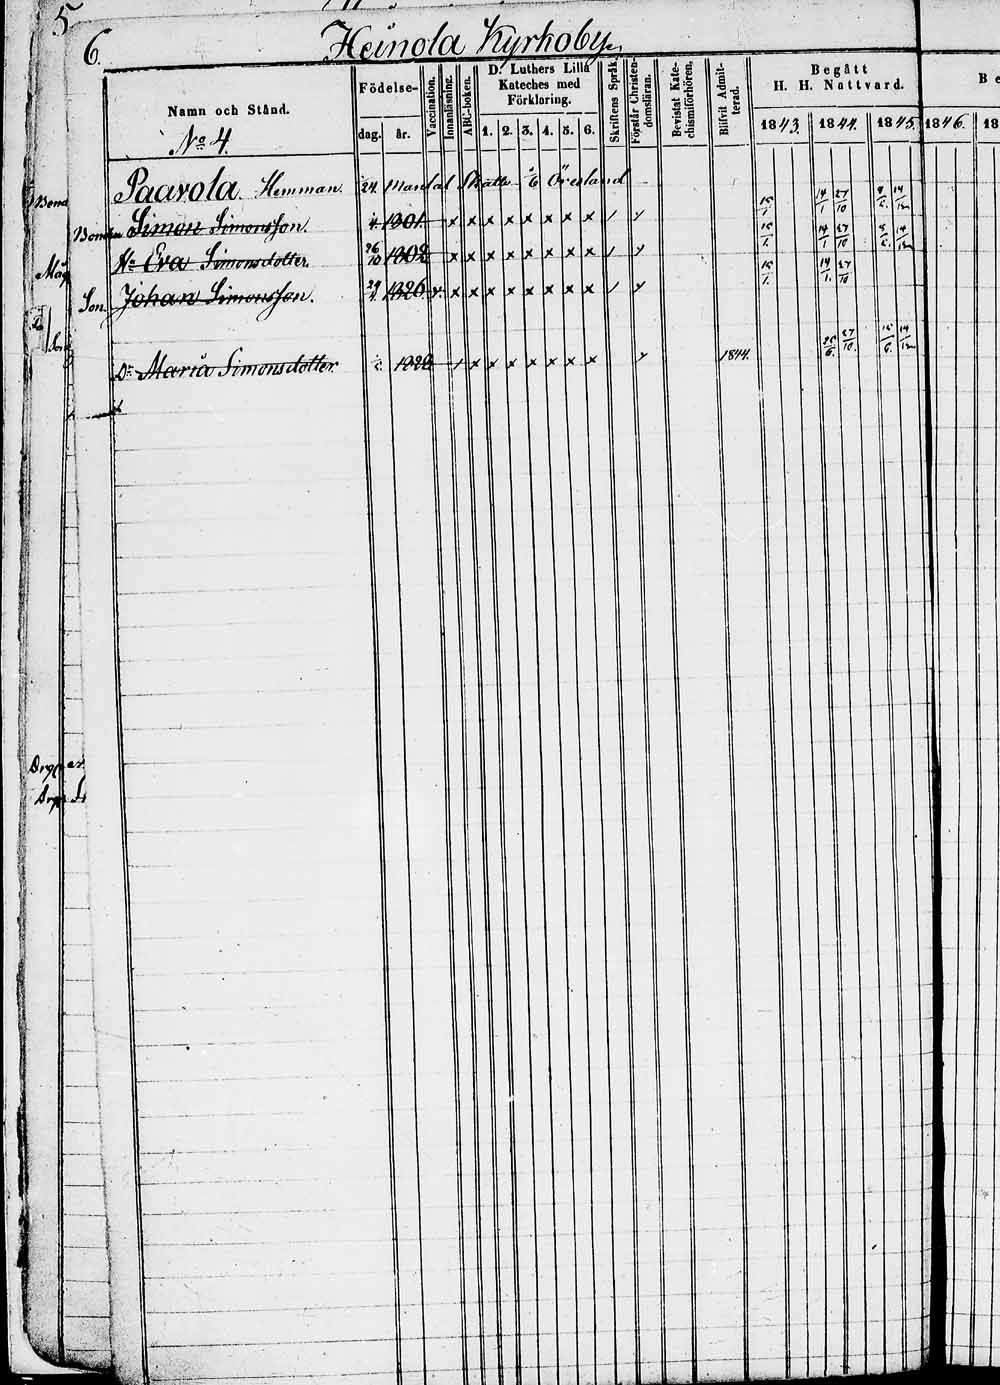 5
6.
Heinola Kyrkoby.
Namn och Stånd.
No 4.
Födelse-
dag. år.
Vaccination.
Innanläsning.
ABC-boken.
D. Luthers Lilla Kateches med Förklaring.
1. 2. 3. 4. 5. 6.
Skriftens Språk.
Förstår Christendomsläran.
Bevistat Katechismiförhören.
Blifvit Admitterad.
Begått H. H. Nattvard.
1843. 1844. 1845. 1846. 18
Paavola Hemman. 24 Mantal Skatte 1/6 Öresland
Bonden Simon Simonsson. 1801. x x x x x x x x / y 15/1. 14/1 27/10
Hu Eva Simonsdotter. 26/10 1802 x x x x x x x x / y 15/1. 14/1 27/10
Son Johan Simonsson. 1826 v. x x x x x x x x / y 15/1. 14/1. 27/10
Dr Maria Simonsdotter. / x x x x x x x y 1844. 25/6. 27/10.